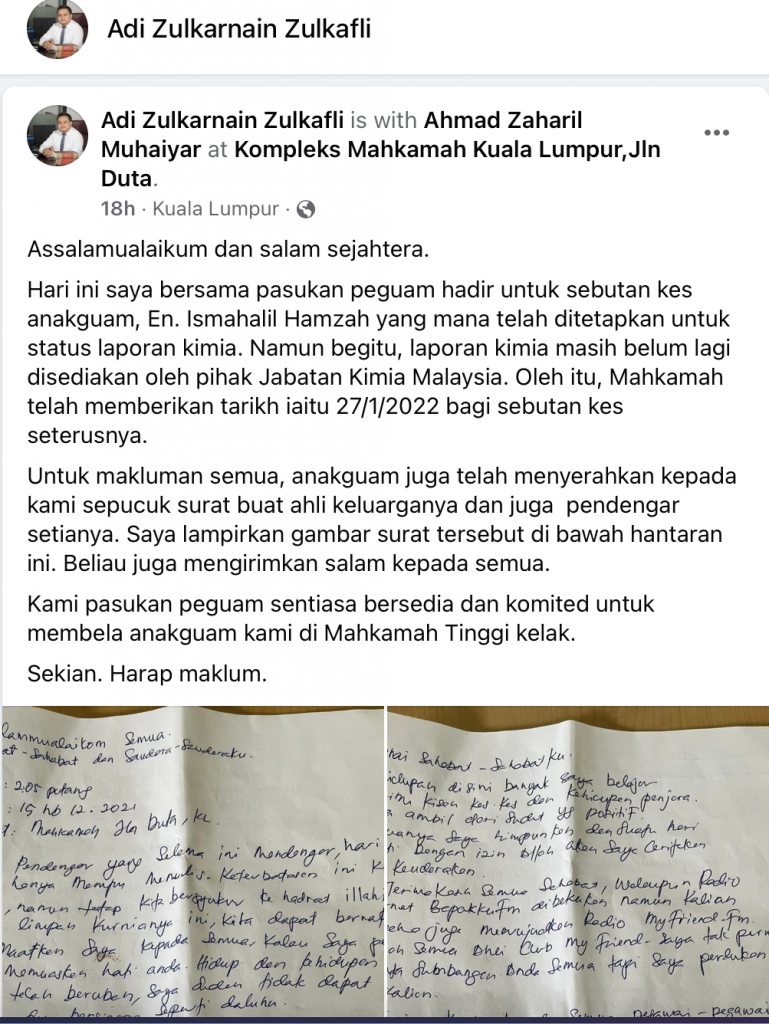 Adi Zulkarnain Zulkafli
Adi Zulkarnain Zulkafli is with Ahmad Zaharil
Muhaiyar at Kompleks Mahkamah Kuala Lumpur,Jln
Duta.
18h · Kuala Lumpur ·
Assalamualaikum dan salam sejahtera.
Hari ini saya bersama pasukan peguam hadir untuk sebutan kes
anakguam, En. Ismahalil Hamzah yang mana telah ditetapkan untuk
status laporan kimia. Namun begitu, laporan kimia masih belum lagi
disediakan oleh pihak Jabatan Kimia Malaysia. Oleh itu, Mahkamah
telah memberikan tarikh iaitu 27/1/2022 bagi sebutan kes
seterusnya.
Untuk makluman semua, anakguam juga telah menyerahkan kepada
kami sepucuk surat buat ahli keluarganya dan juga pendengar
setianya. Saya lampirkan gambar surat tersebut di bawah hantaran
ini. Beliau juga mengirimkan salam kepada semua.
Kami pasukan peguam sentiasa bersedia dan komited untuk
membela anakguam kami di Mahkamah Tinggi kelak.
Sekian. Harap maklum.
lammualaikom Semua.
at-Sahabat dan Saudara-Saudaraku.
: 2.05 petang
: 15 hb 12. 2021
: Mahkamah Jln Duta, KL.
Pendengar yang Selama ini Mendengar, hari
hanya Mampu Menulis. Keterbatasan ini K
, namun tetap Kita bersyukur ke hadrat illahi
limpah Kurnianya ini, Kita dapat bernaf
Maafkan Saya kepada Semua Kalau Saya
Memuaskan hati anda. Hidup dan kehidupan
telah berubah, Saya tidak dapat
seperti dahulu.
hai Sahabat-Sahabatku.
idupan disini banyak Saya belajar
Kisah Kes-Kes dan Kehidupan penjara.
ambil dari Sudut yg positif.
uanya Saya himpunkan dan Suatu hari
Dengan izin Allah akan Saya Ceritakan
Keudarakan.
Terima Kasih Semua Sahabat, Walaupun Radio
net BapakKuFm dibekukan namun Kalian
juga Mewujudkan Radio MyFriend-Fm.
Semua Ahli Club My Friend-Saya tak
Sumbangan Anda Semua tapi Saya perlukan
Kalian.
pegawai-pegawai